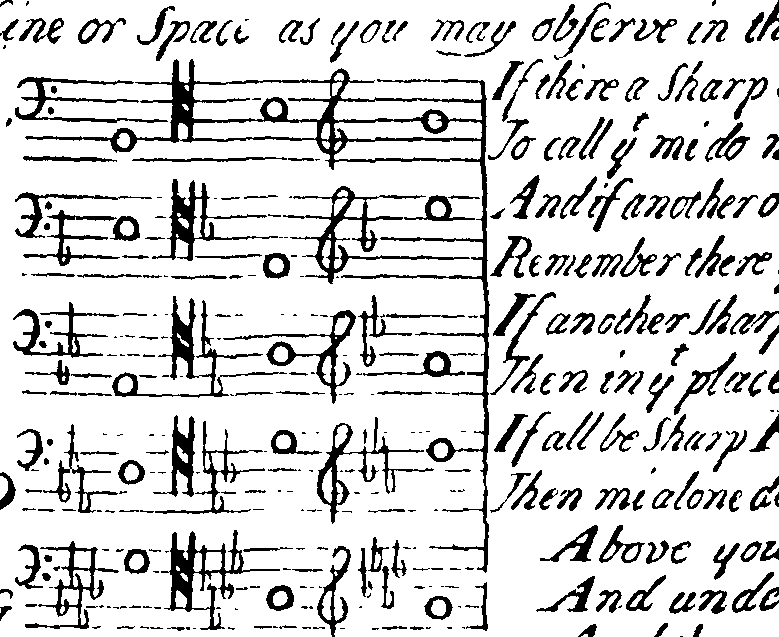 ine or Space as you may observe in th
If there a Sharp
To call yt mi do n
And if another o
Remember there
If another Sharp
Then in yt place
If all be Sharp
Then mi alone d
Above you
And unde